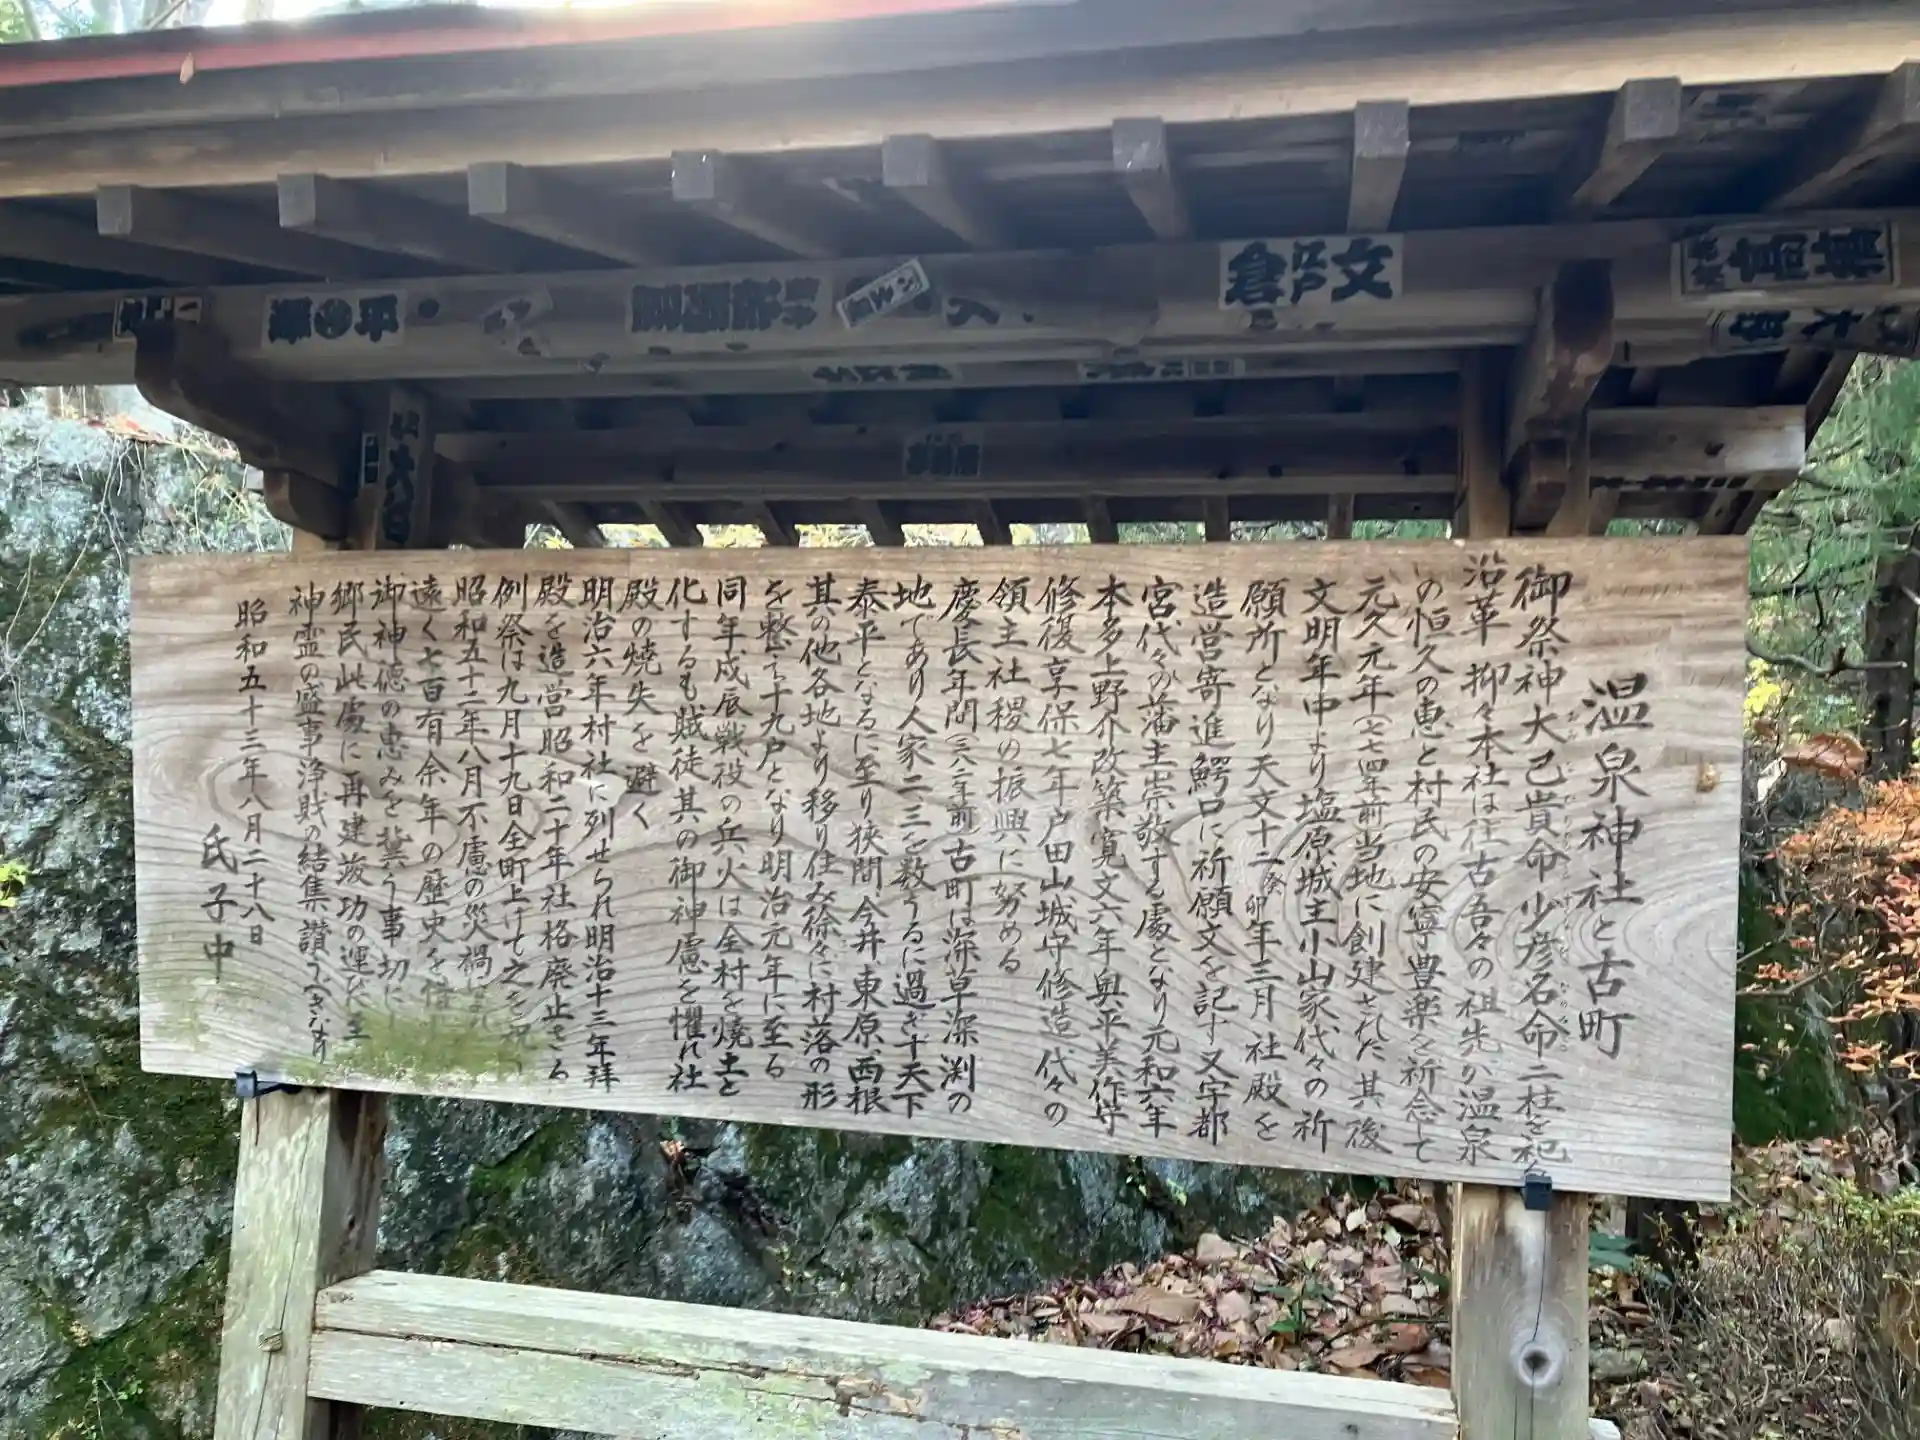 文
江戸
倉
平
大
温泉神社と古町
御祭神大己貴命少彦名命二柱を祀
沿革 抑々本社は往古吾々の祖先が温泉
の恒久の恵と村民の安寧豊楽を祈念して
元久元年(七七四年前当地に創建された其後
文明年中より塩原城主小山家代々の祈
願所となり天文十二癸卯年三月社殿を
造営寄進鰐口に祈願文を記す又宇都
宮代々の藩主崇敬する處となり元和六年
本多上野介改築寛文六年奥平美作守
修復享保七年戸田山城守修造代々の
領主社稷の振興に努める
慶長年間(三八二年前)古町は深草深渕の
地であり人家二三を数うるに過ぎず天下
泰平となるに至り狭間今井東原西根
其の他各地より移り住み徐々に村落の形
を整え十九戸となり明治元年に至る
同年戊辰戦役の兵火は全村を焼土と
化するも賊徒其の御神慮を懼れ社
殿の焼失を避く
明治六年村社に列せられ明治十三年拝
殿を造営昭和二十年社格廃止さる
例祭は九月十九日全町上げて之を祝
昭和五十二年八月不慮の災禍
遠く七百有余年の歴史を惜
御神徳の恵みを冀う事切に
郷民此處に再建竣功の運びに至
神霊の盛事浄財の結集讃うべきなり
昭和五十三年八月二十八日
氏子中